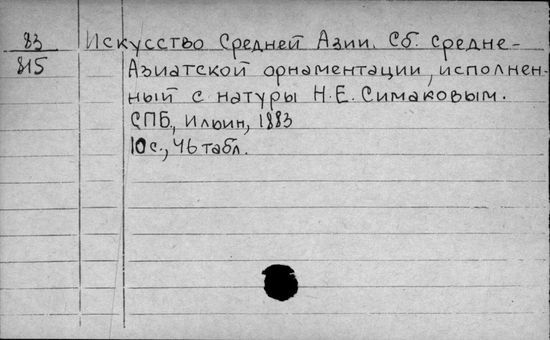 83 Искусство Средней Азии. Сб. средне-
815 Азиатской орнаментации, исполнен-
ный с натуры Н.Е. Симаковым.
СПБ., Ильин, 1883
10с., 46 табл.